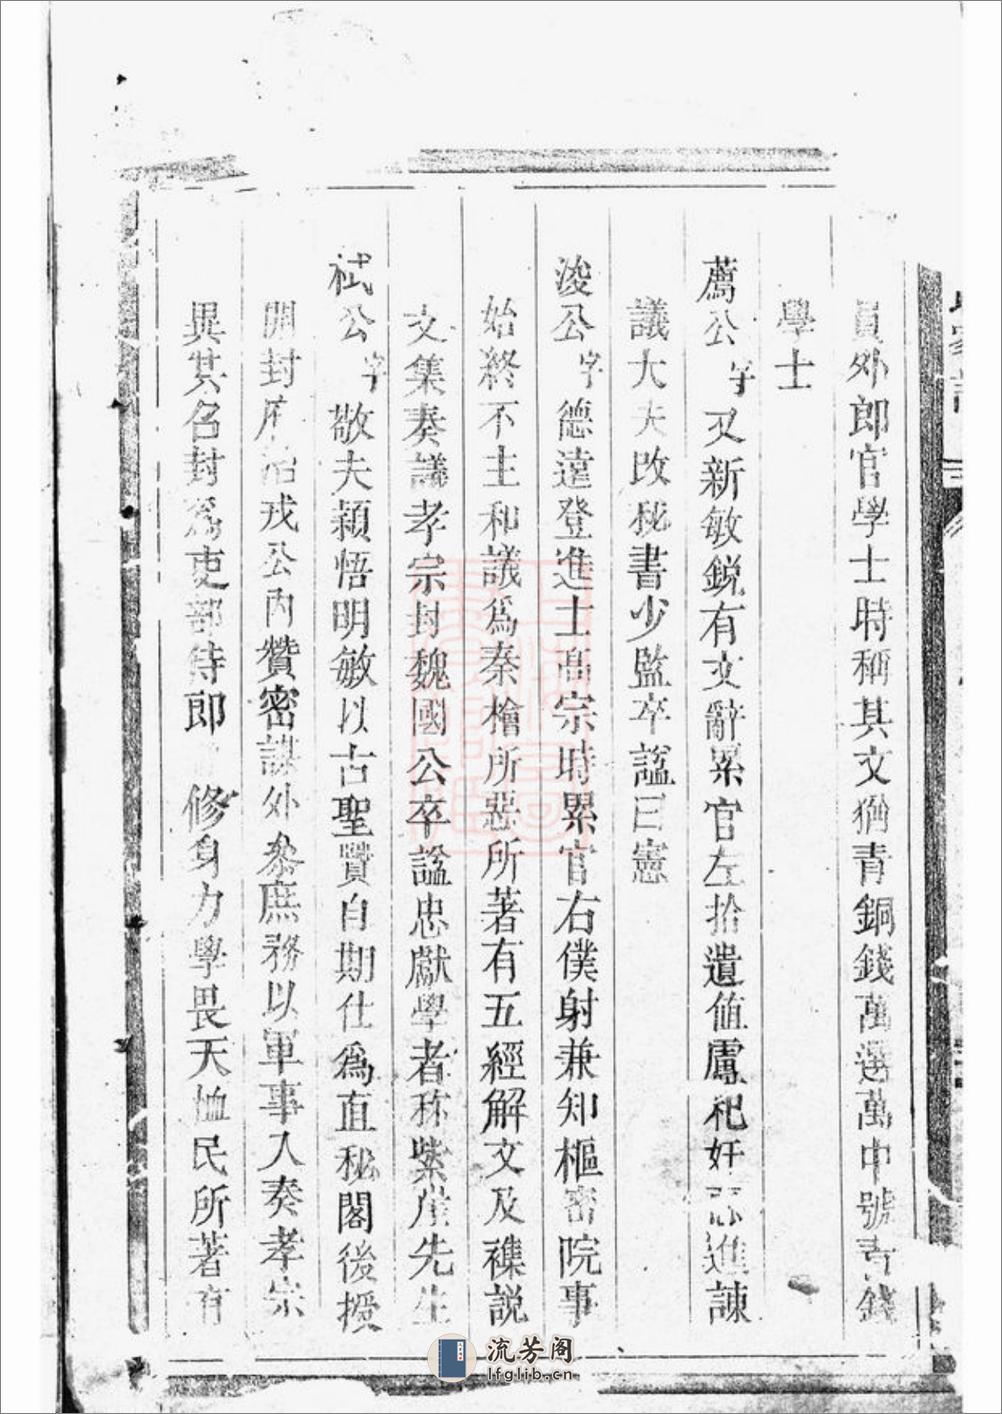 員外郎官學士時稱其文猶青銅錢萬選萬中號青錢
學士
薦公字又新敏銳有文辭累官左拾遺值盧祀奸惡進諫
議大夫改秘書少監卒諡曰憲
浚公字德遠登進士高宗時累官右僕射兼知樞密院事
始終不主和議爲秦檜所惡所著有五經解文及襍説
文集奏議孝宗封魏國公卒諡忠獻學者称紫崖先生
栻公字敬夫穎悟明敏以古聖賢自期仕爲直秘閣後授
開封府治戎公内贊密謀外叅庶務以軍事入奏孝宗
異其名封爲吏部侍郎修身力學畏天恤民所著有
流芳阁
lfglib.cn